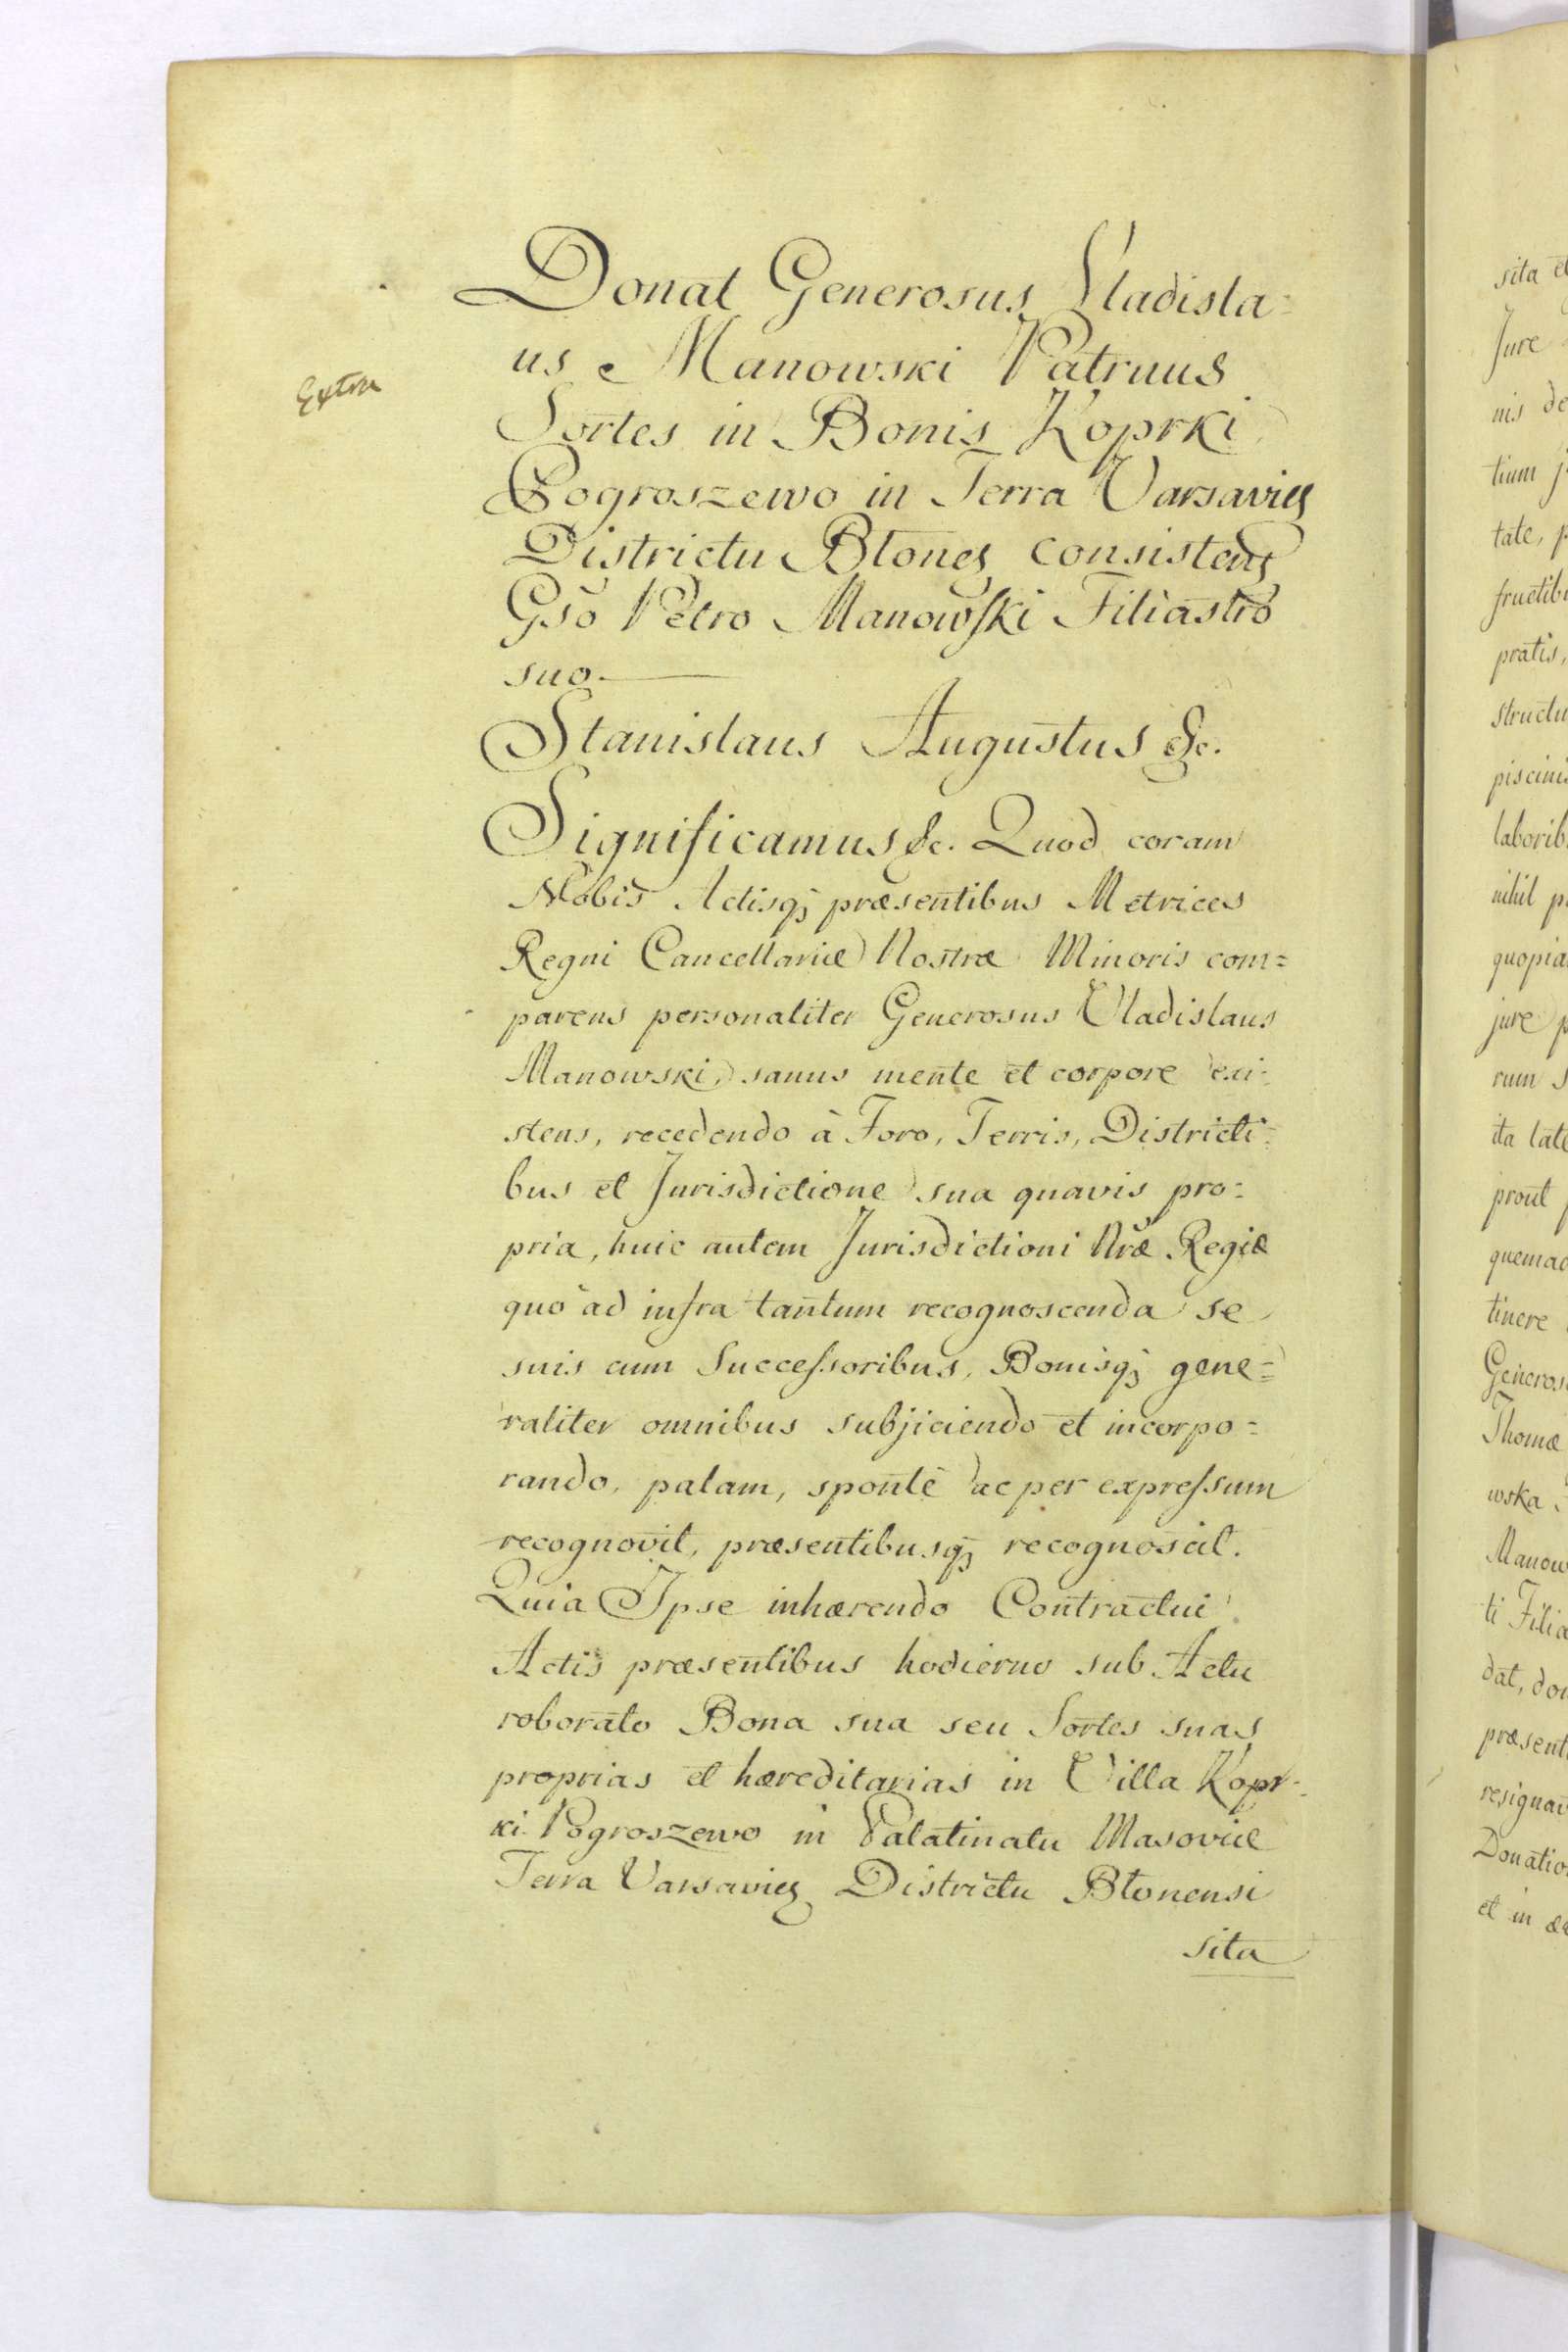 Extra
Donat Generosus Vladisla=
us Manowski Patruus
Sortes in Bonis Koprki
Pogroszewo in Terra Varsavieñ
Districtu Błoneñ consisteñ
Gsõ Petro Manowski Filiastro
suo.
Stanislaus Augustus &c.
Significamus &c. Quod coram
Nobis Actisq; præsentibus Metrices
Regni Cancellariæ Nostræ Minoris com=
parens personaliter Generosus Vladislaus
Manowski, sanus mente et corpore exi=
stens, recedendo à Foro, Terris, Districti=
bus et Jurisdictione sua quavis pro=
pria, huic autem Jurisdictioni Nræ Regiæ
quo ad infra tantum recognoscenda se
suis cum Successoribus, Bonisq; gene=
raliter omnibus subjiciendo et incorpo=
rando, palam, sponte ac per expressum
recognovit, præsentibusq; recognoscit.
Quia Ipse inhærendo Contractui
Actis præsentibus hodierno sub Actu
roborato Bona sua seu Sortes suas
proprias et hæreditarias in Villa Kopr=
ki Pogroszewo in Palatinatu Masoviæ
Terra Varsavieñ Districtu Błonensi
sita
sita et
Jure
nis de
tium
tate,
fructib
pratis,
structu
piscinis
laborib
nihil
quopia
jure
rum
ita late
prout
quemad
tinere
Generos
Thomæ
wska
Manow
ti Filia
dat, do
præsent
resignav
Donatio
et in